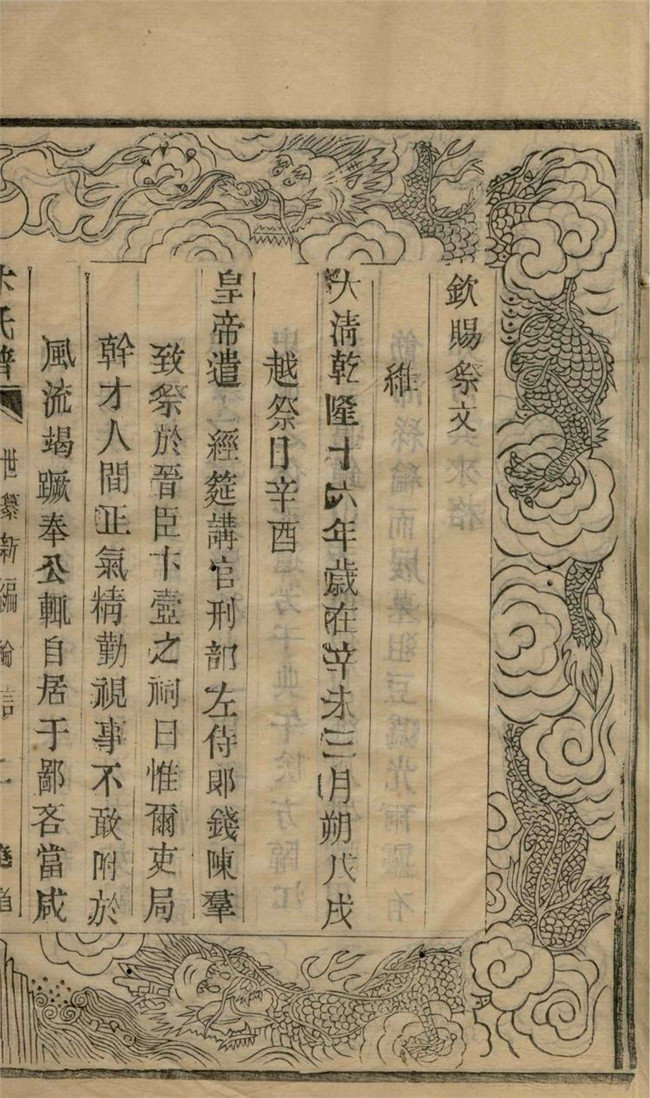 欽賜祭文
維
大清乾隆十六年歲在辛未三月朔戊戌
越祭日辛酉
皇帝遣經筵講官刑部左侍郎錢陳羣
致祭於晉臣卞壼之祠曰惟爾吏局
幹才人間正氣精勤視事不敢附於
風流竭蹶奉公輒自居于鄙吝當咸
卞氏譜
世纂新編綸言